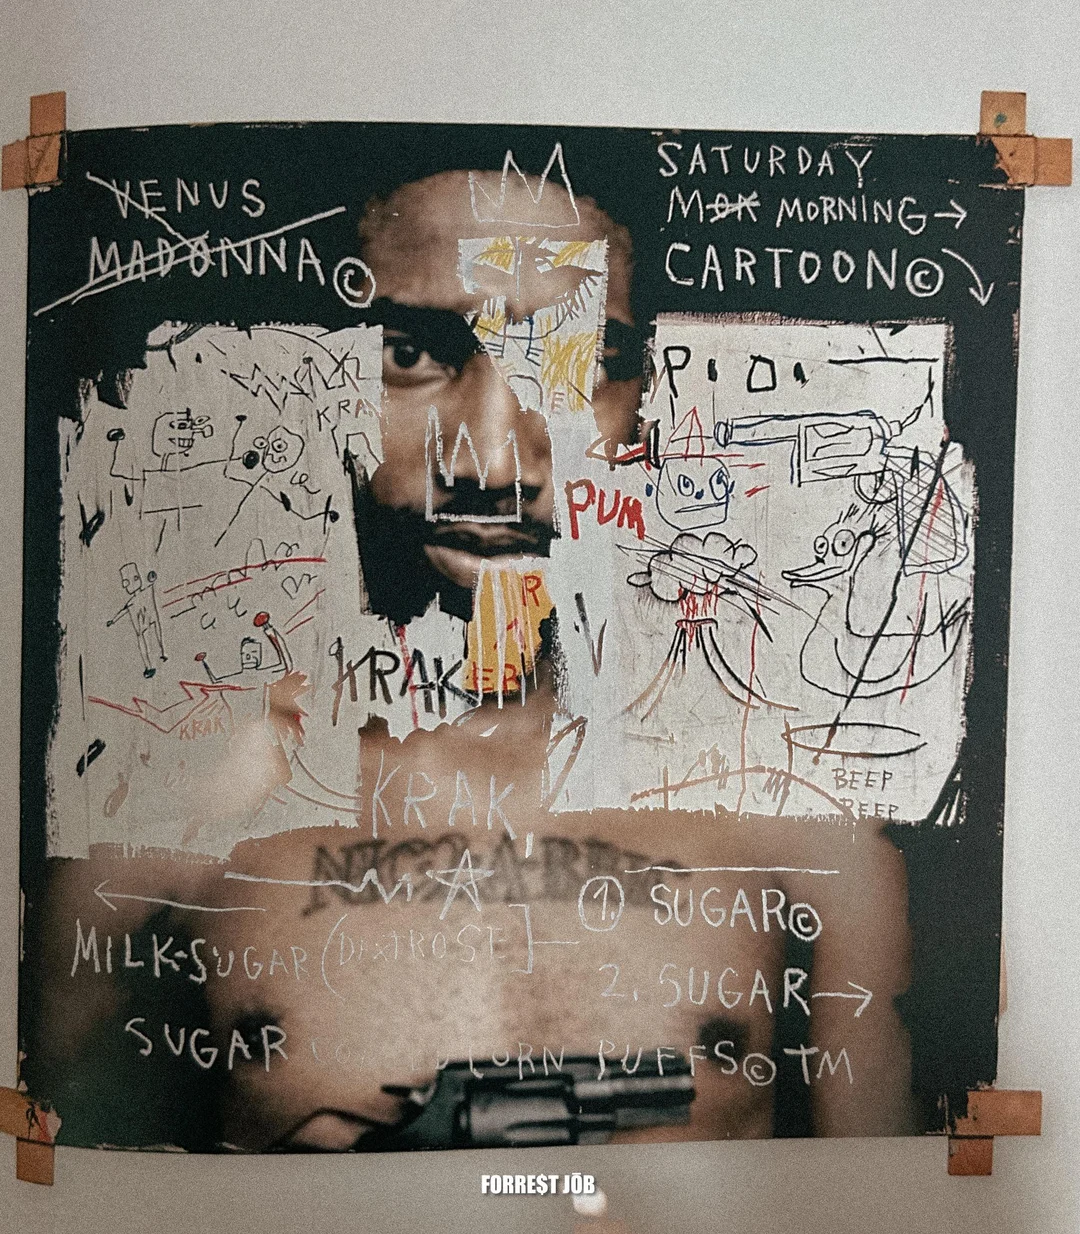 VENUS
MADONNA©
SATURDAY
MORNING→
CARTOON©
KRAK
P.O.
PUM
R
ER
KRAK
KRAK
KRAK
BEEP
BEEP
MILK-SUGAR (DEXTROSE]
1. SUGAR©
2. SUGAR→
SUGAR CORN PUFFS© TM
FORRE$T JŌB